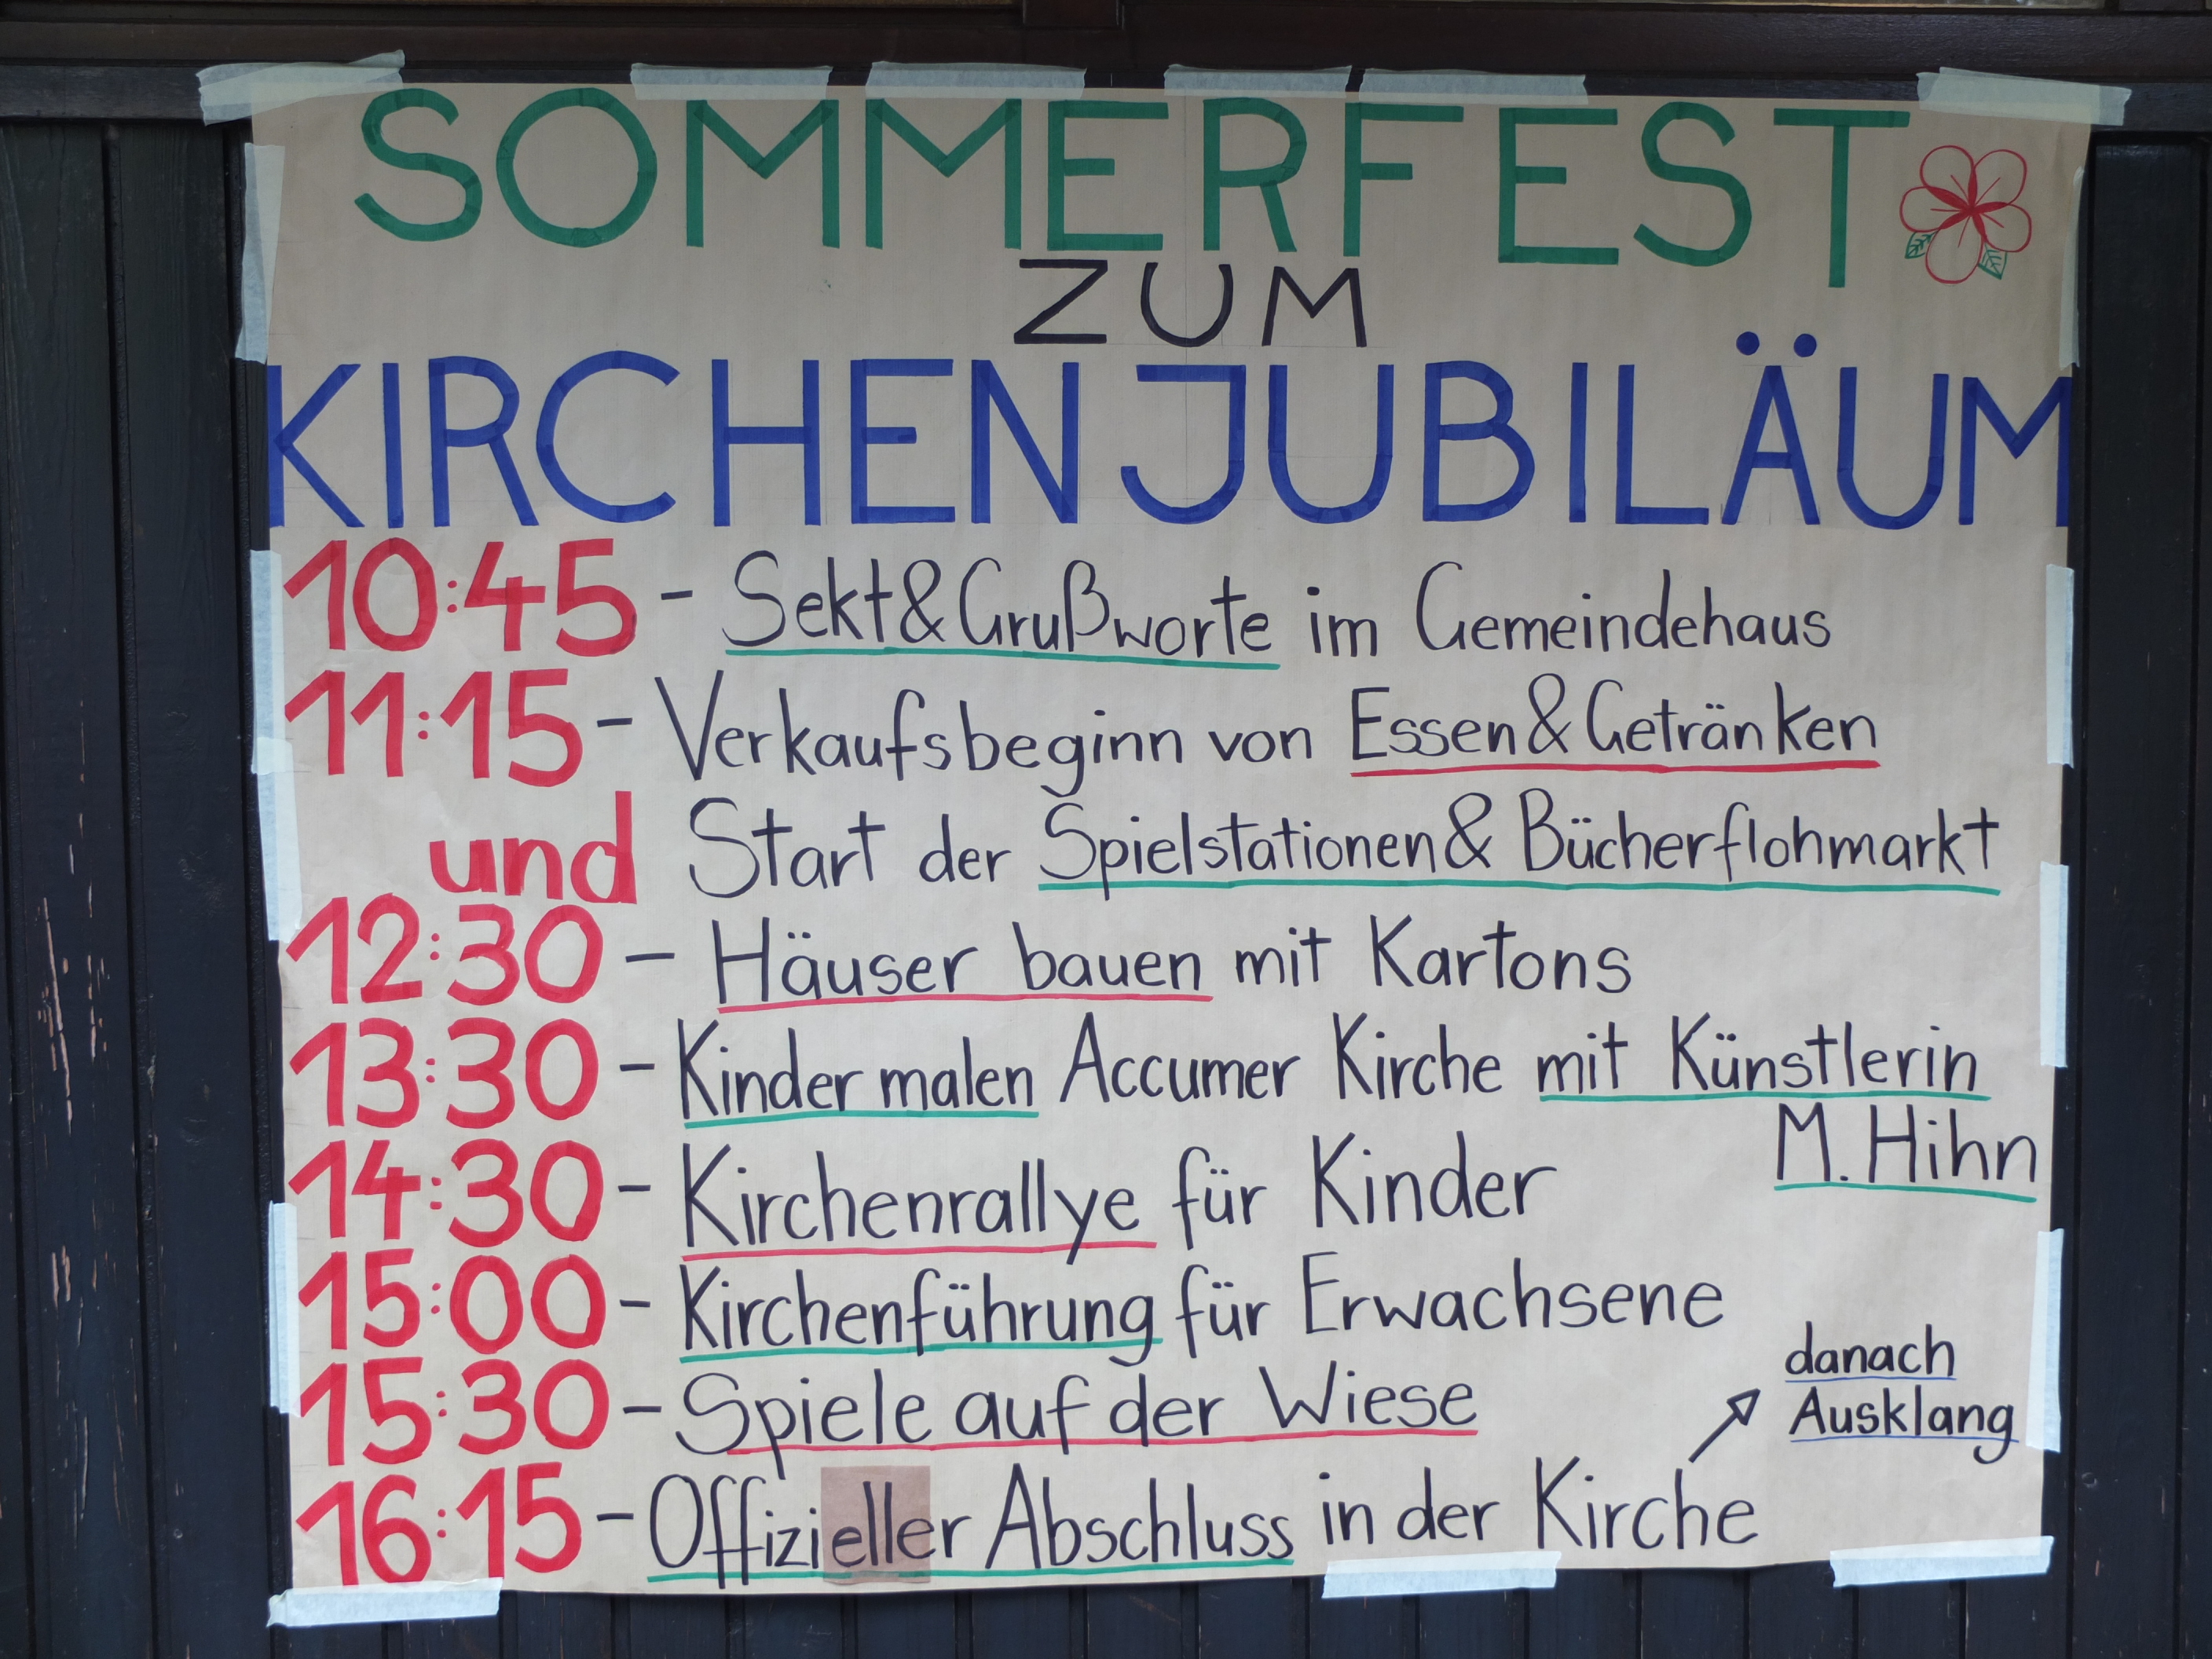 SOMMERFEST
ZUM
KIRCHENJUBILÄUM
10:45 - Sekt & Grußworte im Gemeindehaus
11:15 - Verkaufsbeginn von Essen & Getränken
und Start der Spielstationen & Bücherflohmarkt
12:30 - Häuser bauen mit Kartons
13:30 - Kinder malen Accumer Kirche mit Künstlerin
M. Hihn
14:30 - Kirchenrallye für Kinder
15:00 - Kirchenführung für Erwachsene
15:30 - Spiele auf der Wiese
16:15 - Offizieller Abschluss in der Kirche
danach
Ausklang